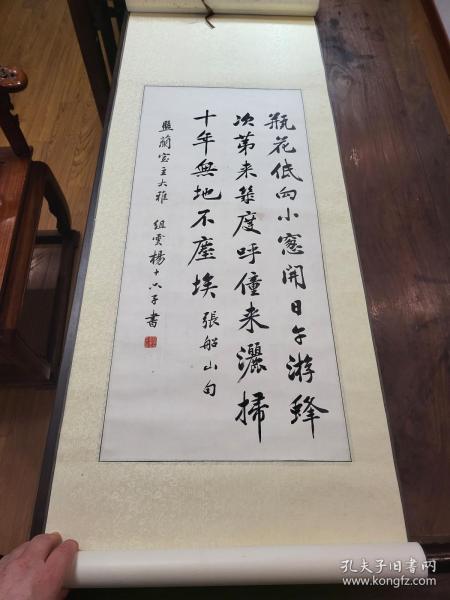 瓶花低向小窻開日午游蜂
次第来幾度呼僮来灑掃
十年無地不塵埃 張船山句
蘭室主大雅 組雲楊十六子書
孔夫子旧书网
www.kongfz.com